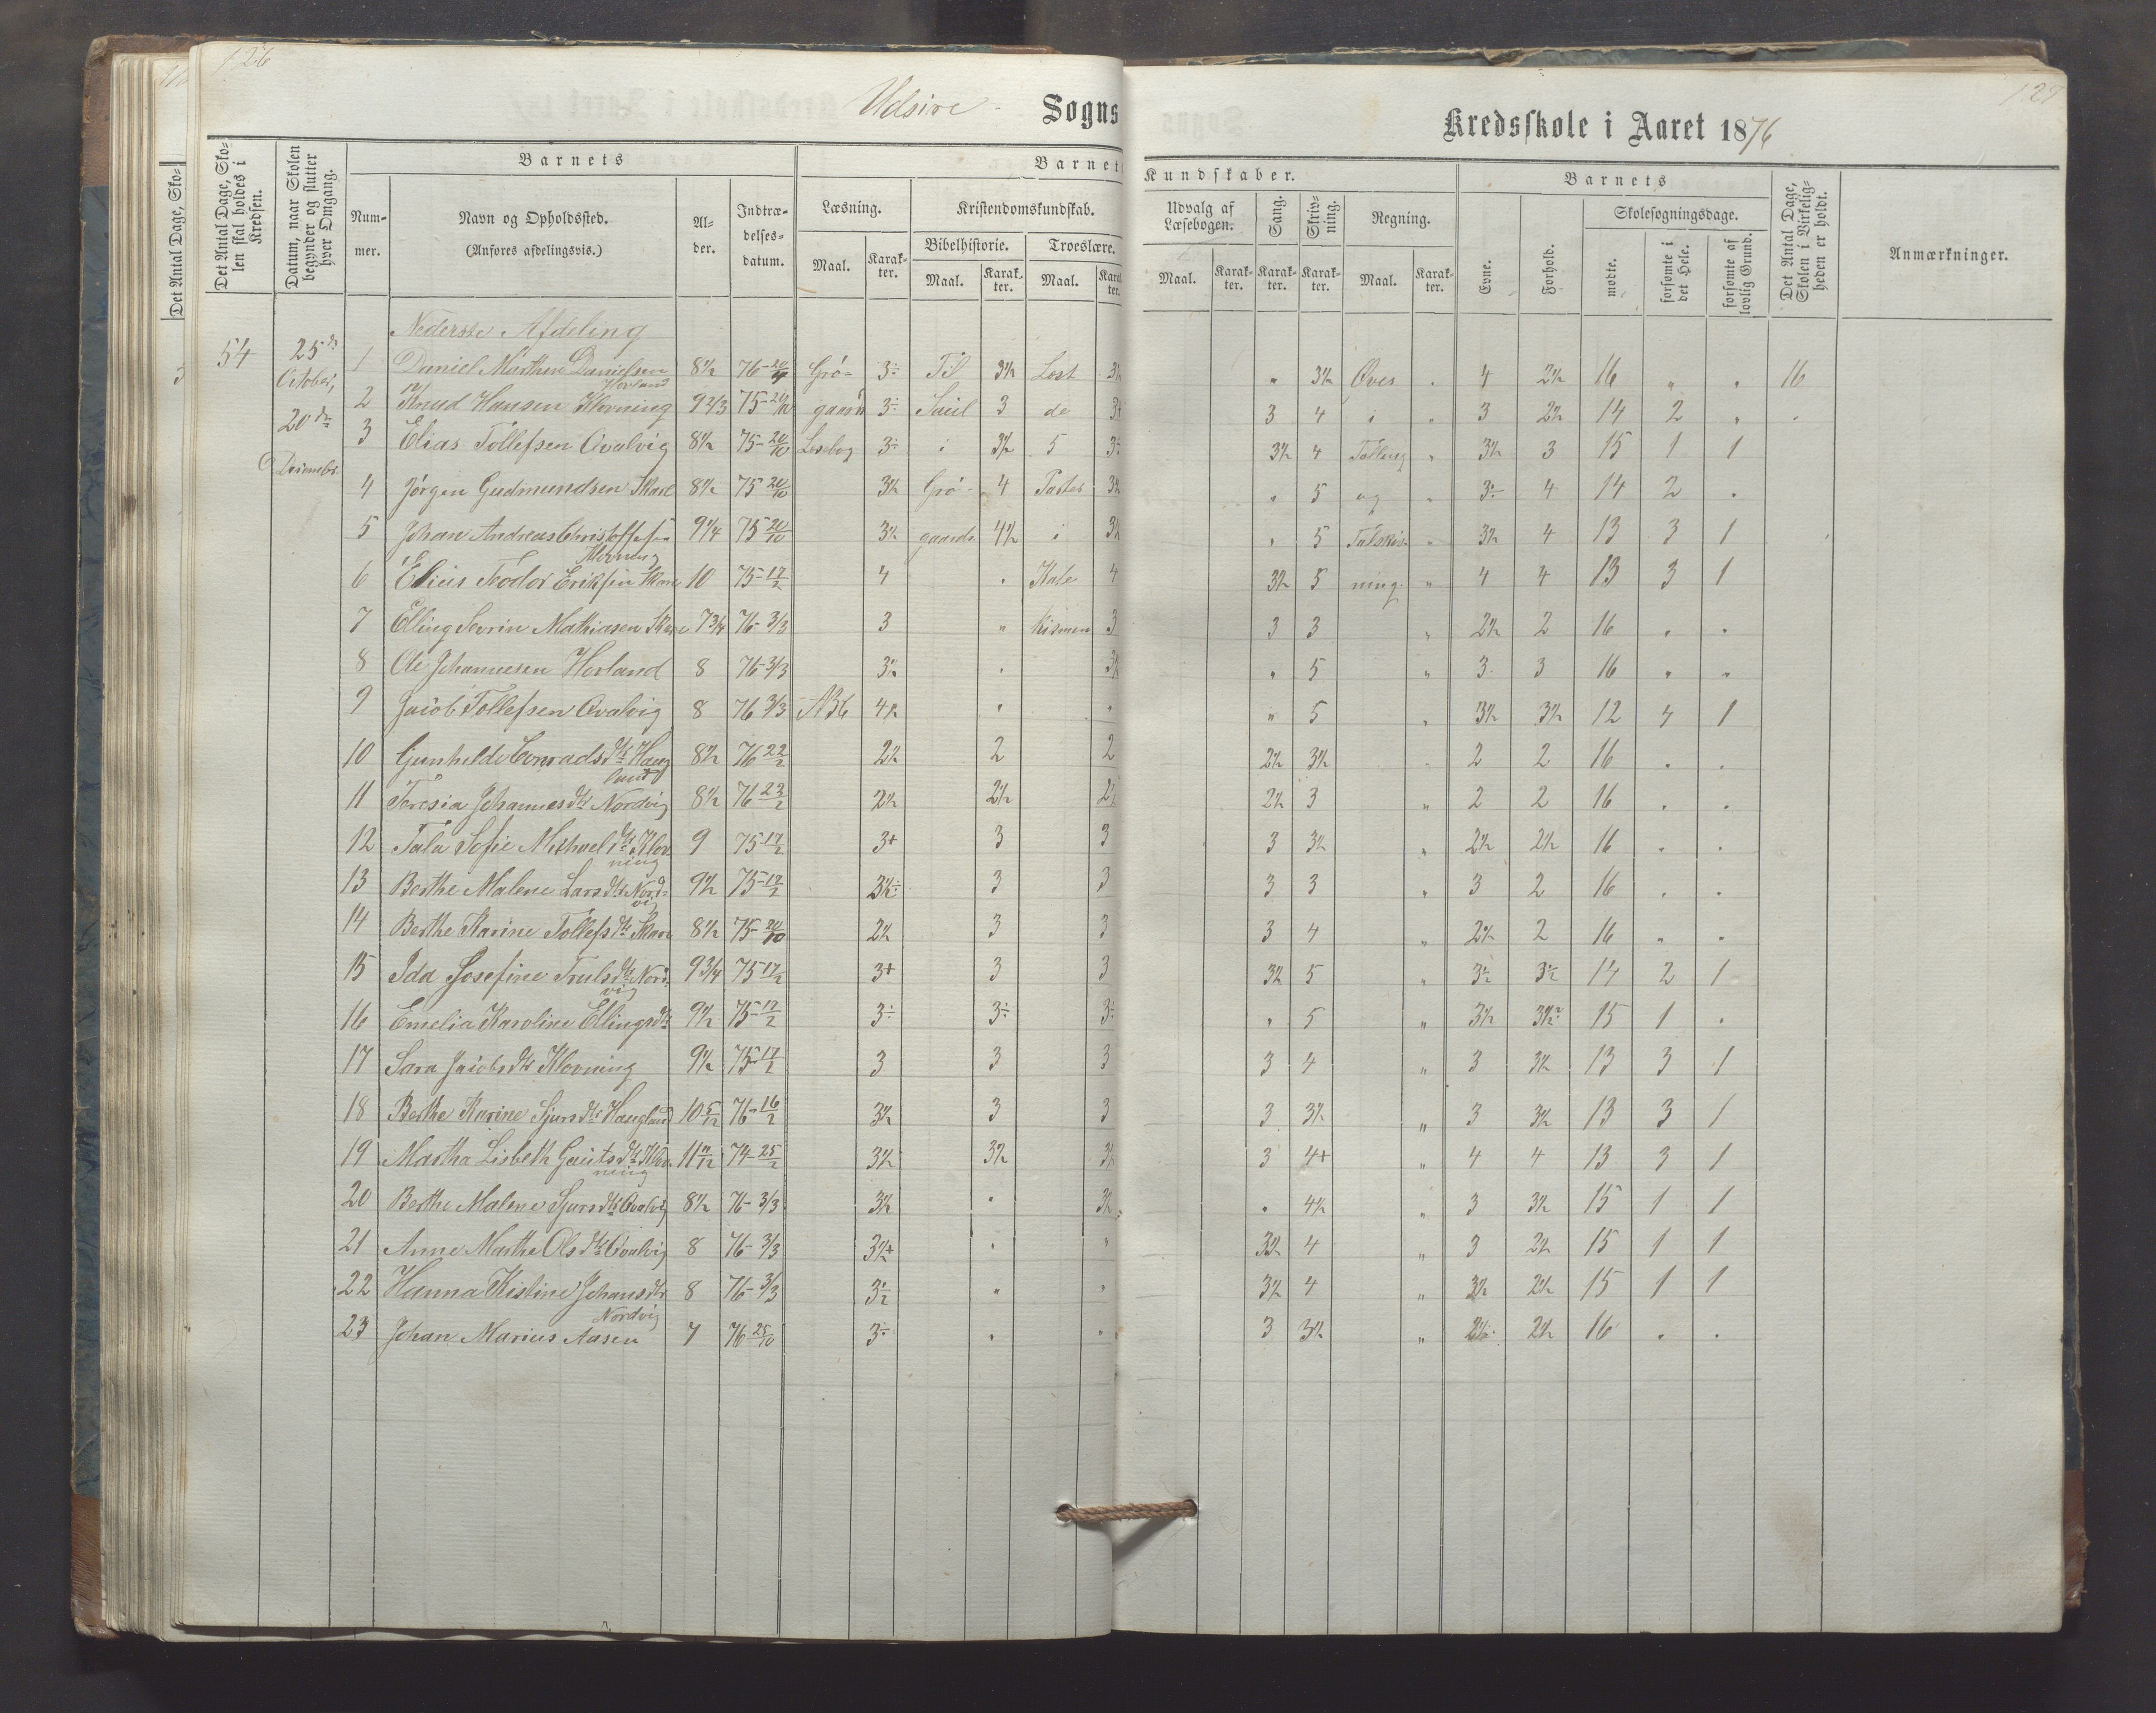 126
127
Udsire Sogns Kredsskole i Aaret 1876
Det Antal Dage, Sko-
Det Antal Dage, Sko-
len skal holdes i
Kredsen.
Datum, naar Skolen
begynder og slutter
hver Omgang.
Barnets
Num-
mer.
Navn og Opholdssted.
(Anføres afdelingsvis.)
Al-
der.
Indtræ-
delses-
datum.
Barnets Kundskaber.
Læsning.
Maal.
Karak-
ter.
Kristendomskundskab.
Bibelhistorie.
Maal.
Karak-
ter.
Troeslære.
Maal.
Karak-
ter.
Udvalg af
Læsebogen.
Maal.
Karak-
ter.
Sang.
Karak-
ter.
Skriv-
ning.
Karak-
ter.
Regning.
Maal.
Karak-
ter.
Barnets
Evne.
Forhold.
Skolesøgningsdage.
mødte.
forsømte i
det Hele.
forsømte af
lovlig Grund.
Det Antal Dage,
Skolen i Virkelig-
heden er holdt.
Anmærkninger.
Nederste Afdeling
54
25de
October,
20de
December
1 Daniel Marthin Danielsen 8½ 76-20/4 Grø- 3÷ Til 3½ Lært 3½ " 3½ Øves " 4 2½ 16 " " 16
Hovland
2 Knud Hansen Klovning 9 2/3 75-20/10 gaards 3÷ Saul 3 de 3+ 3 4 i " 3 2½ 14 2 "
3 Elias Tollefsen Qvalvig 8½ 75-20/10 Læsebog 3÷ i 3½ 5 3÷ 3½ 4 Tælling " 3½ 3 15 1 1
4 Jørgen Gudmundsen Skare 8½ 75 20/10 3½ Grø- 4 Parter 3½ " 5 og " 3÷ 4 14 2 "
5 Johan Andreas Christoffersen 9¼ 75 20/10 3½ gaards 4½ i 3½ " 5 Talskriv- " 3½ 4 13 3 1
Klovning
6 Elius Teodor Eriksen Skare 10 75-17/2 4 " Kate 4 3½ 5 ning. " 4 4 13 3 1
7 Elling Sevrin Mathiasen Skare 7¾ 76-3/3 3 " kismen 3 3 3 " 2½ 2 16 " "
8 Ole Johannesen Hovland 8 76-3/3 3½ " 3½ " 5 " 3 3 16 " "
9 Jacob Tollefsen Qvalvig 8 76 3/3 ABC 4½ " " " 5 " 3½ 3½ 12 4 1
10 Gunhilde Conradsdtr Haug 8½ 76 22/2 2½ 2 2 2½ 3½ " 2 2 16 " "
land
11 Teresia Johannesdtr Nordvig 8½ 76 23/2 2½ 2½ 2½ 2½ 3 " 2 2 16 " "
12 Tala Sofie Michaeldtr Klov 9 75-17/2 3+ 3 3 3 3½ " 2½ 2½ 16 " "
ning
13 Berthe Malene Larsdtr Nord- 9½ 75-17/2 3½÷ 3 3 3 3 " 3 2 16 " "
vig
14 Berthe Karine Tollefsdtr Skare 8½ 75-20/10 2½ 3 3 3 4 " 2½ 2 16 " "
15 Ida Josefine Trulsdtr Nord- 9¾ 75 17/2 3+ 3 3 3½ 5 " 3½ 3½ 14 2 1
vig
16 Emelia Karoline Ellingsdtr 9½ 75-17/2 3÷ 3÷ 3÷ " 5 " 3½ 3½ 15 1 "
17 Sara Jacobsdtr Klovning 9½ 75-17/2 3 3 3 3 4 " 3 3½ 13 3 1
18 Berthe Karine Sjursdtr Haugland 10 5/12 76-16/2 3½ 3 3 3 3½ " 3 3½ 13 3 1
19 Martha Lisbeth Gautsdtr Klov 11 11/12 74-25/2 3½ 3½ 3½ 3 4+ " 4 4 13 3 1
ning
20 Berthe Malene Sjursdtr Qvalvig 8½ 76-3/3 3½ " 3½ " 4½ " 3 3½ 15 1 1
21 Anne Marthe Olsdtr Qvalvig 8 76-3/3 3½+ " " 3½ 4 " 3 2½ 15 1 1
22 Hanna Kistine Johansdtr 8 76-3/3 3½ " " 3½ 4 " 3½ 2½ 15 1 1
Nordvig
23 Johan Marius Aasen 7 76 25/10 3÷ " " 3 3½ " 2½ 2½ 16 " "